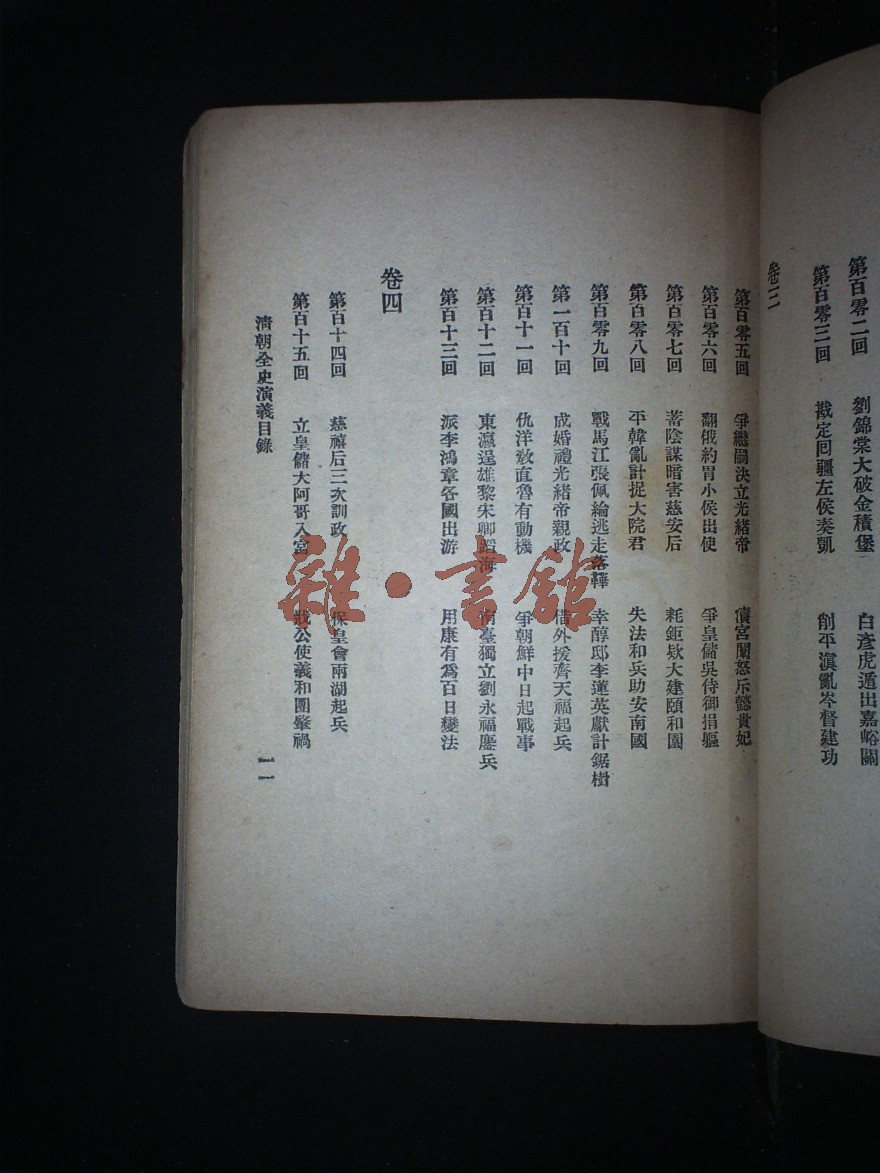 第百零二回 劉錦棠大破金積堡 白彥虎遁出嘉峪關
第百零三回 戡定回疆左侯奏凱 削平滇亂岑督建功
卷三
第百零五回 爭繼嗣決立光緒帝 儐宮闈怒斥懿貴妃
第百零六回 翻俄約胃小侯出使 爭皇儲吳侍御捐軀
第百零七回 蓄陰謀暗害慈安后 耗鉅欵大建頤和園
第百零八回 平韓亂計捉大院君 失法和兵助安南國
第百零九回 戰馬江張佩綸逃走落韡 幸醇邸李蓮英獻計鋸樹
第一百十回 成婚禮光緒帝親政 借外援齊天福起兵
第百十一回 仇洋敎直魯有動機 爭朝鮮中日起戰事
第百十二回 東瀛逞雄黎宋卿蹈海 南臺獨立劉永福鏖兵
第百十三回 派李鴻章各國出游 用康有爲百日變法
卷四
第百十四回 慈禧后三次訓政 保皇會兩湖起兵
第百十五回 立皇儲大阿哥入宮 戕公使義和團肇禍
清朝全史演義目錄
一一
雜·書館